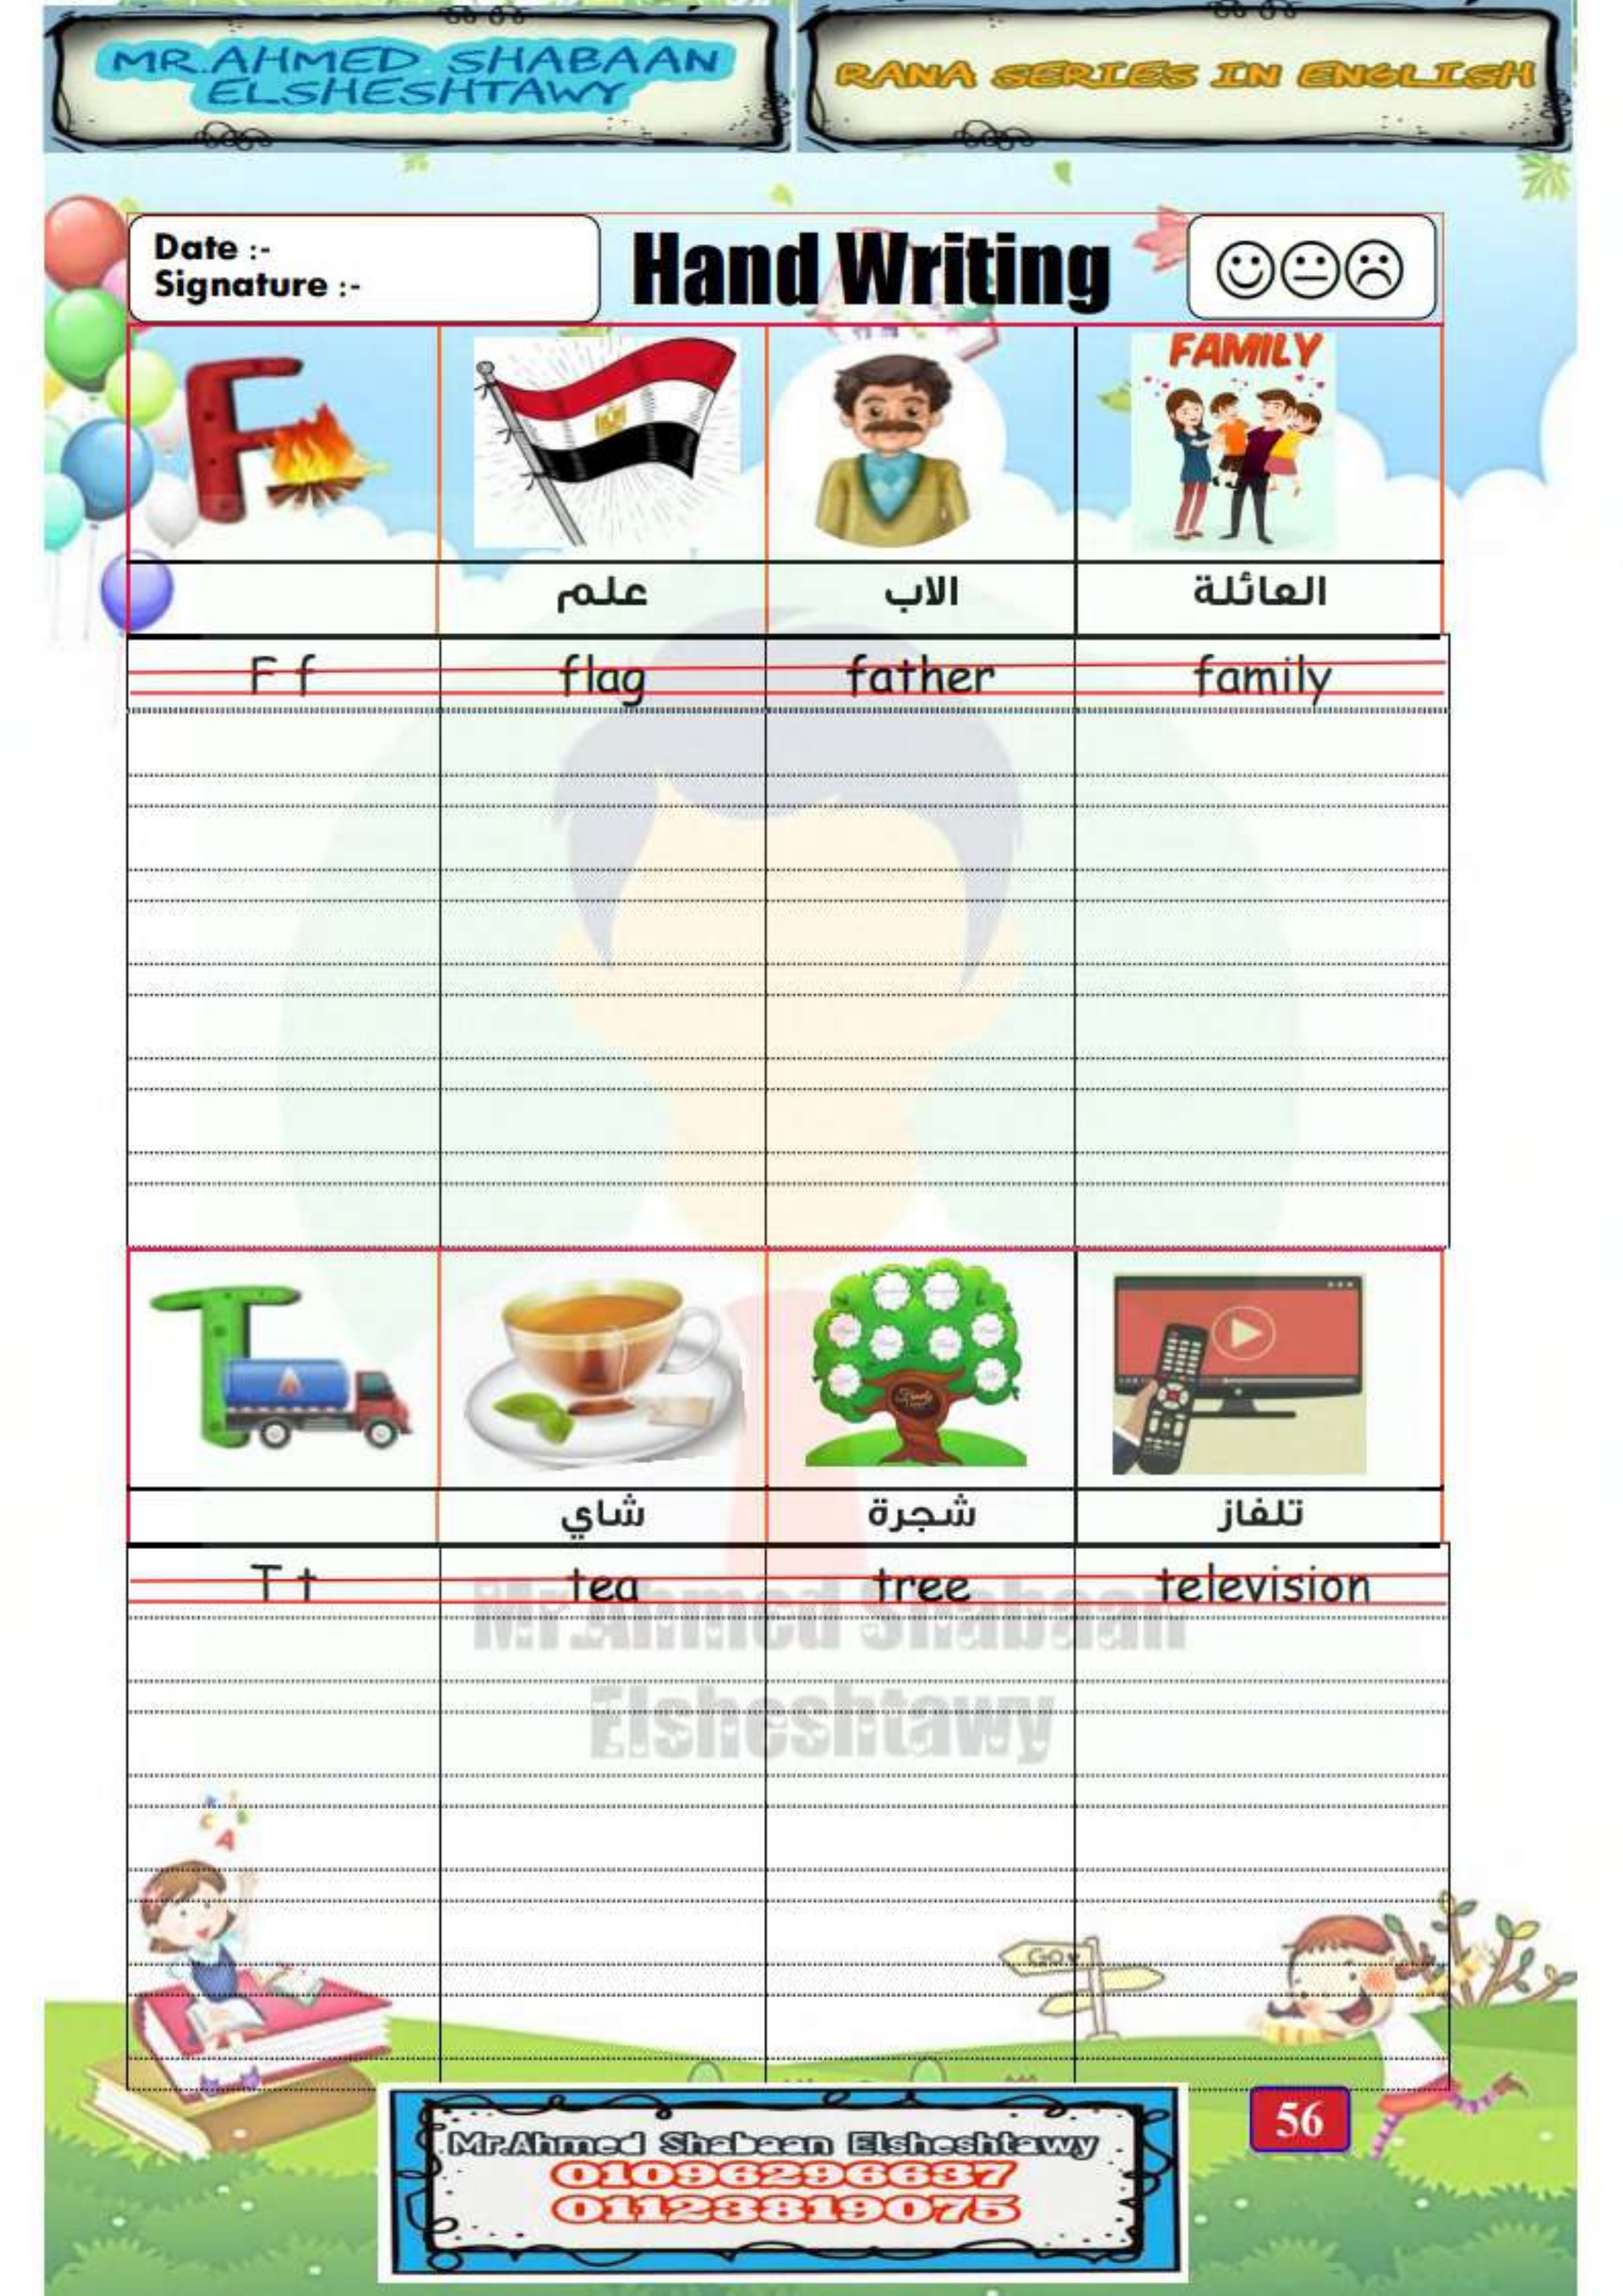 MR.AHMED SHABAAN
ELSHESHTAWY
RANA SERIES IN ENGLISH
Date :-
Signature :-
Hand Writing
F
FAMILY
علم
الاب
العائلة
F f
flag
father
family
T
شاي
شجرة
تلفاز
T t
tea
tree
television
Mr.Ahmed Shabaan
Elsheshtawy
A
GO
Mr.Ahmed Shabaan Elsheshtawy
01096296637
01123819075
56